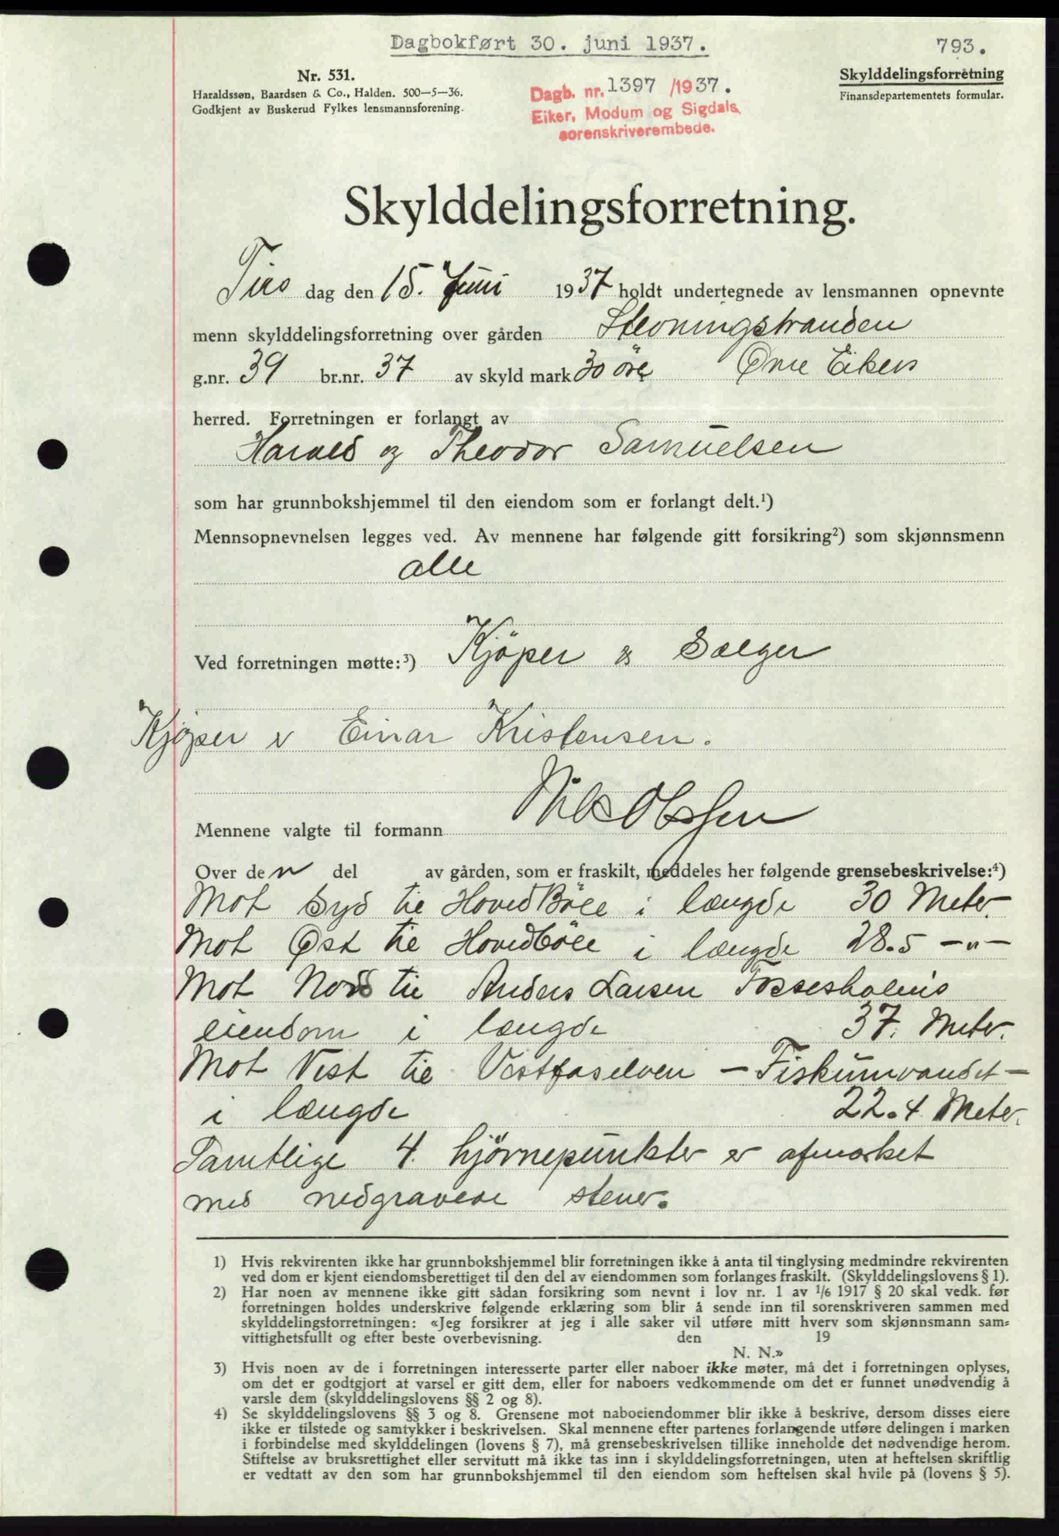 Dagbokført 30. juni 1937.
793.
Nr. 531.
Haraldssøn, Baardsen & Co., Halden. 500–5–36.
Godkjent av Buskerud Fylkes lensmannsforening.
Dagb. nr. 1397 /1937.
Eiker, Modum og Sigdals
sorenskriverembede.
Skylddelingsforretning
Finansdepartementets formular.
Skylddelingsforretning.
Tirsdag den 15. Juni 1937 holdt undertegnede av lensmannen opnevnte
menn skylddelingsforretning over gården
g.nr. 39 br.nr. 37 av skyld mark 30 öre Övre Eikers
herred. Forretningen er forlangt av
Harald og Theodor Samuelsen
som har grunnbokshjemmel til den eiendom som er forlangt delt.¹)
Mennsopnevnelsen legges ved. Av mennene har følgende gitt forsikring²) som skjønnsmenn
alle
Ved forretningen møtte:³) Kjöper & Sælger
Kjöper er Einar Kristensen.
Mennene valgte til formann Nils Olsen
Over den del av gården, som er fraskilt, meddeles her følgende grensebeskrivelse:⁴)
Mot Syd til HovedBölе i længde 30 Meter.
Mot Øst til Hovedböle i længde 28.5 –"–
Mot Nord til Anders Larsen Fossesholms
eiendom i længde 37. Meter.
Mot Vest til Vestfoselven – Fiskumvandet –
i længde 22.4 Meter.
Samtlige 4. hjörnepunkter er afmerket
med nedgravede stener.
1) Hvis rekvirenten ikke har grunnbokshjemmel blir forretningen ikke å anta til tinglysing medmindre rekvirenten
ved dom er kjent eiendomsberettiget til den del av eiendommen som forlanges fraskilt. (Skylddelingslovens § 1).
2) Har noen av mennene ikke gitt sådan forsikring som nevnt i lov nr. 1 av ¹/₆ 1917 § 20 skal vedk. før
forretningen holdes underskrive følgende erklæring som blir å sende inn til sorenskriveren sammen med
skylddelingsforretningen: «Jeg forsikrer at jeg i alle saker vil utføre mitt hverv som skjønnsmann sam-
vittighetsfullt og efter beste overbevisning. den 19
N. N.»
3) Hvis noen av de i forretningen interesserte parter eller naboer ikke møter, må det i forretningen oplyses,
om det er godtgjort at varsel er gitt dem, eller for naboers vedkommende om det er funnet unødvendig å
varsle dem (skylddelingslovens §§ 2 og 8).
4) Se skylddelingslovens §§ 3 og 8. Grensene mot naboeiendommer blir ikke å beskrive, dersom disses eiere
ikke er tilstede og samtykker i beskrivelsen. Skal mennene efter partenes forlangende utføre delingen i marken
i forbindelse med skylddelingen (lovens § 7), må grensebeskrivelsen tillike inneholde det nødvendige herom.
Stiftelse av bruksrettighet eller servitutt må ikke tas inn i skylddelingsforretningen, uten at heftelsen skriftlig
er vedtatt av den som har grunnbokshjemmel til den eiendom som heftelsen skal hvile på (lovens § 5).